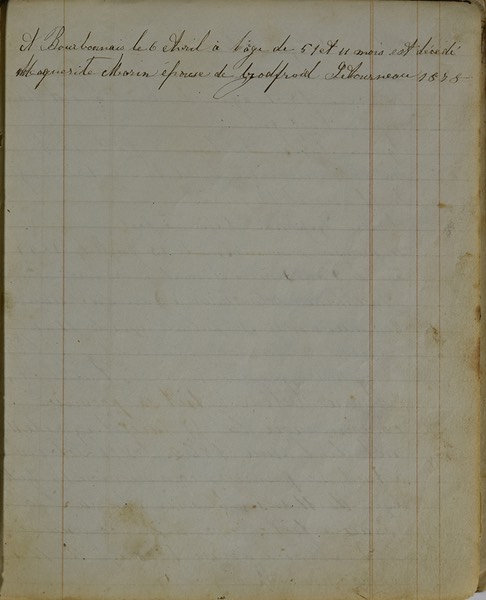 A Bourbonnais le 6 Avril à l'âge de 51 et 11 mois est décédé
Maguerite Marin épouse de Godfroid Letourneau 1878